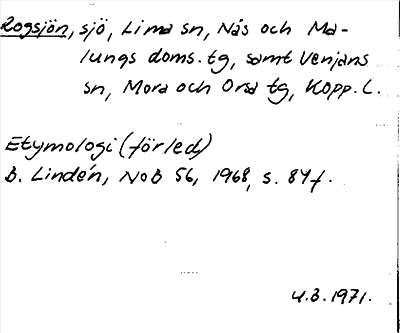 Rogsjön, sjö, Lima sn, Nås och Ma-
lungs doms. tg, samt Venjans
sn, Mora och Orsa tg, Kopp. L.
Etymologi (förled)
B. Lindén, NoB 56, 1968, s. 84f.
4.3.1971.